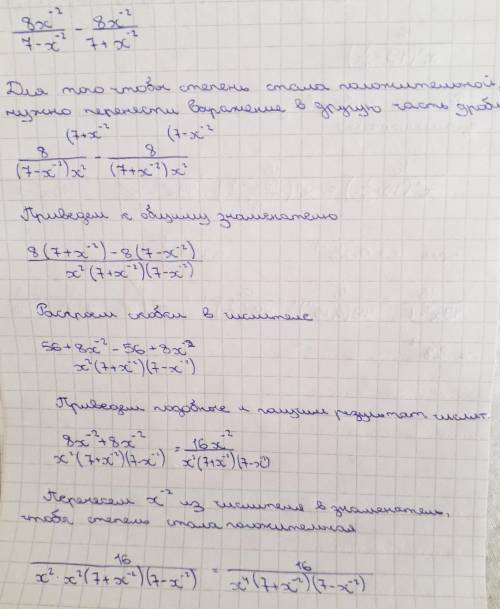 8x⁻²/(7-x⁻²) - 8x⁻²/(7+x⁻²)
Для того чтобы степень стала положительной,
нужно перенести выражение в другую часть дроби
(7+x⁻² (7-x⁻²
8/((7-x⁻²)x²) - 8/((7+x⁻²)x²)
Приведем к общему знаменателю
(8(7+x⁻²)-8(7-x⁻²))/(x²(7+x⁻²)(7-x⁻²))
Раскроем скобки в числителе
(56+8x⁻²-56+8x⁻²)/(x²(7+x⁻²)(7-x⁻²))
Приведем подобные и запишем результат числит.
(8x⁻²+8x⁻²)/(x²(7+x⁻²)(7-x⁻²)) = 16x⁻²/(x²(7+x⁻²)(7-x⁻²))
Перенесем x⁻² из числителя в знаменатель,
чтобы степень стала положительная
16/(x²·x²(7+x⁻²)(7-x⁻²)) = 16/(x⁴(7+x⁻²)(7-x⁻²))